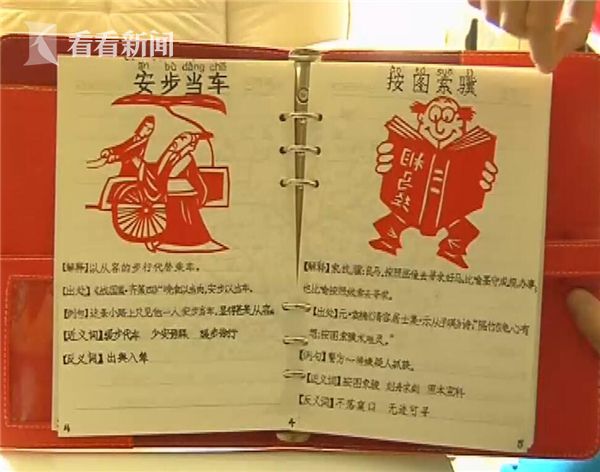 看看新闻
ān bù dàng chē
安步当车
【解释】以从容的步行代替乘车。
【出处】《战国策·齐策四》"晚食以当肉,安步以当车。
【例句】这条小路上只见他一人安步当车,显得甚是从容。
【近义词】缓步代车 少安毋躁 缓步徐行
【反义词】出舆入辇
4
按图索骥
【解释】索:找;骥:良马。按照图像去寻求好马。比喻墨守成规办事;
也比喻按照线索去寻求。
【出处】元·袁桷《清容居士集·示从子瑛》诗:"隔竹
想,按图索骥术难灵。"
【例句】警方一一将嫌疑人抓获。
【近义词】按图索骏 刻舟求剑 照本宣科
【反义词】不落窠臼 无迹可寻
4
5